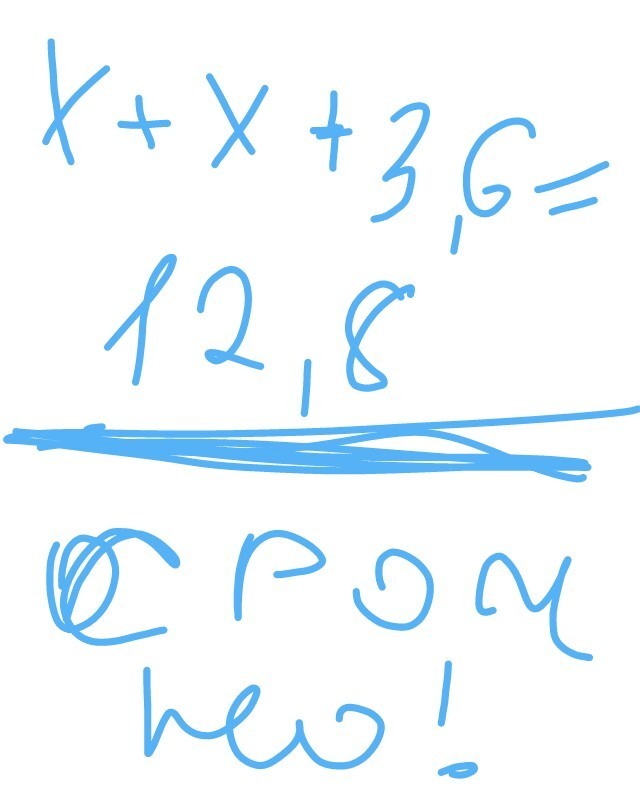 X + X + 3,6 =
12,8
СРОЧ
НО!